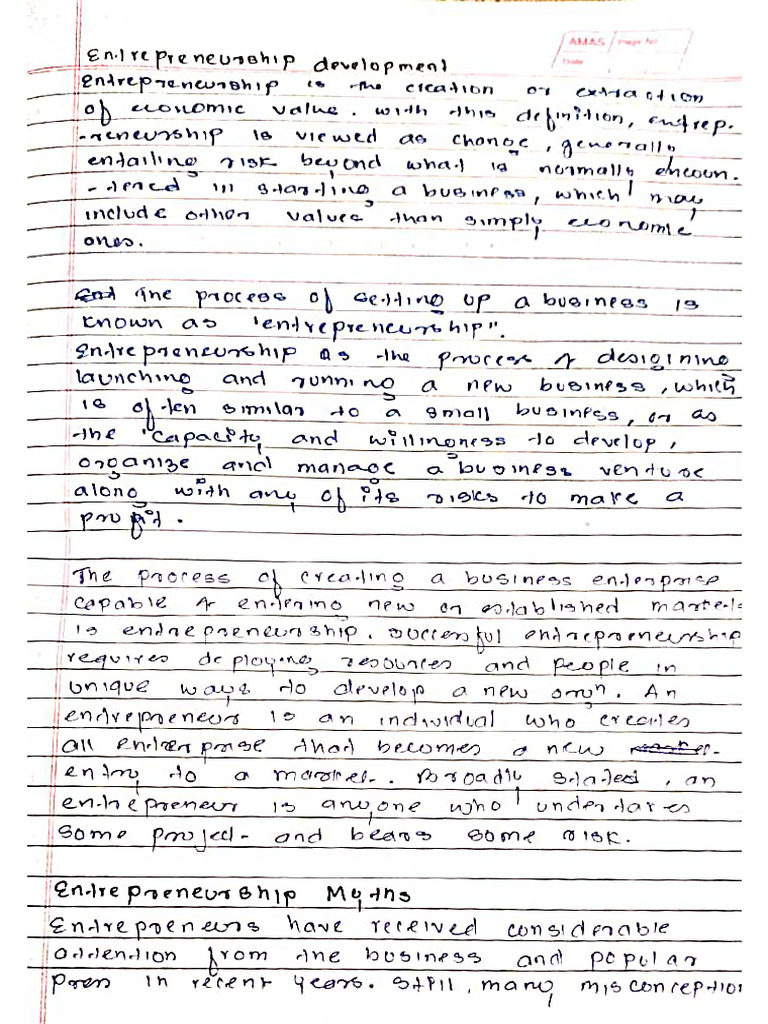 AMAS Page No.
Date
Entrepreneurship development
Entrepreneurship is the creation or extraction
of economic value. with this definition, entrep-
-reneurship is viewed as change, generally
entailing risk beyond what is normally encoun-
-tered in starting a business, which may
include other values than simply economic
ones.
The process of setting up a business is
known as "entrepreneurship".
Entrepreneurship as the process of desigining
launching and running a new business, which
is often similar to a small business, or as
the "capacity and willingness to develop,
organize and manage a business venture
along with any of its risks to make a
profit.
The process of creating a business enterprise
capable of entering new or established markets
is entrepreneurship. successful entrepreneurship
requires deploying resources and people in
unique ways to develop a new orgn. An
entrepreneur is an individual who creates
all enterprise that becomes a new
entry to a market. Broadly stated, an
entrepreneur is anyone who undertakes
some project and bears some risk.
Entrepreneurship Myths
Entrepreneurs have received considerable
attention from the business and popular
press in recent years. Still, many misconception